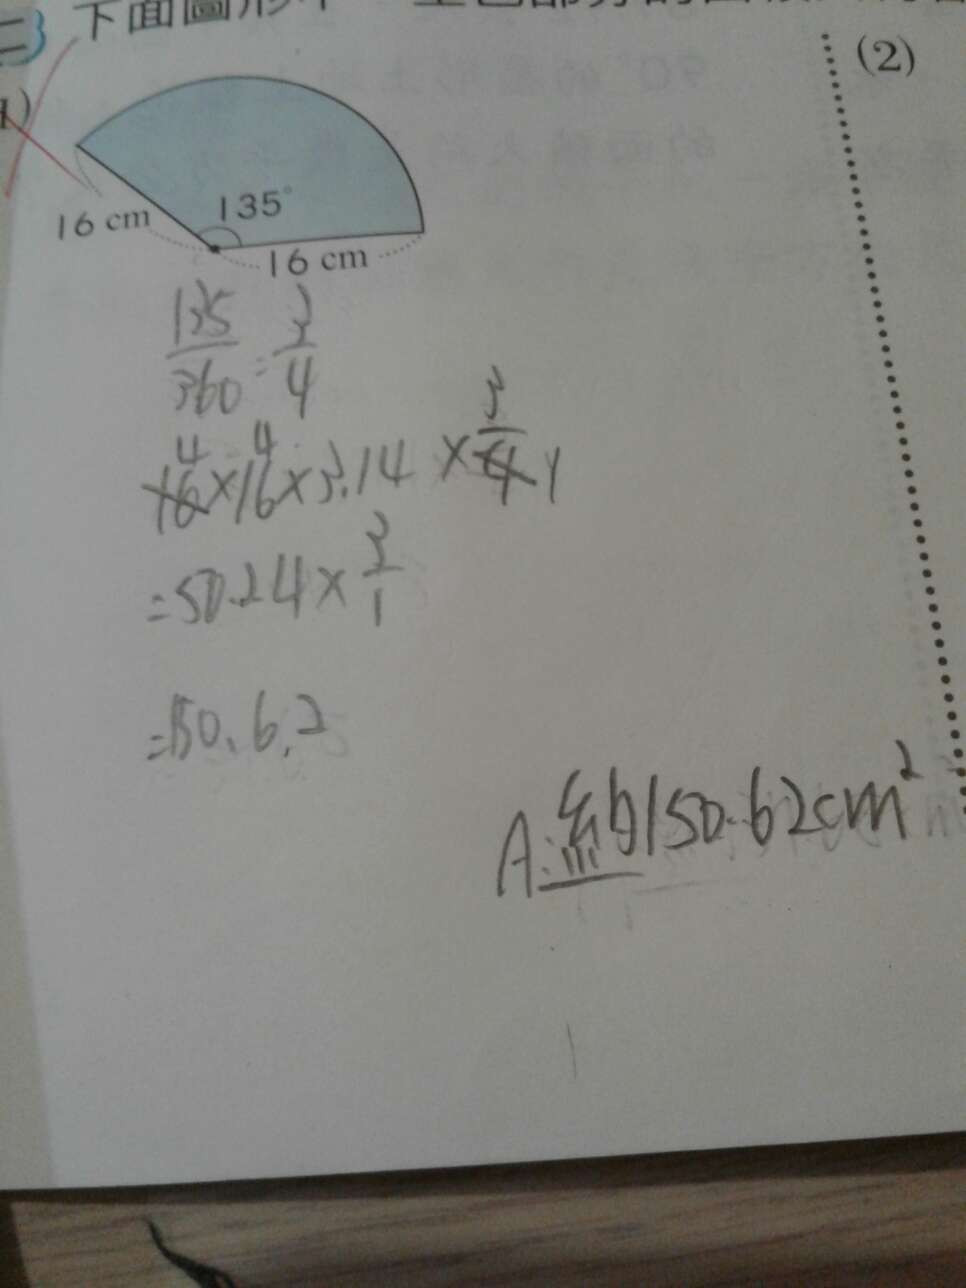 下面圖形中
(2)
1)
135°
16 cm
16 cm
135/360 = 3/4
16 4 × 16 4 × 3.14 × 3/4 1
= 50.24 × 3/1
= 150.6.2
A: 約150.62cm²